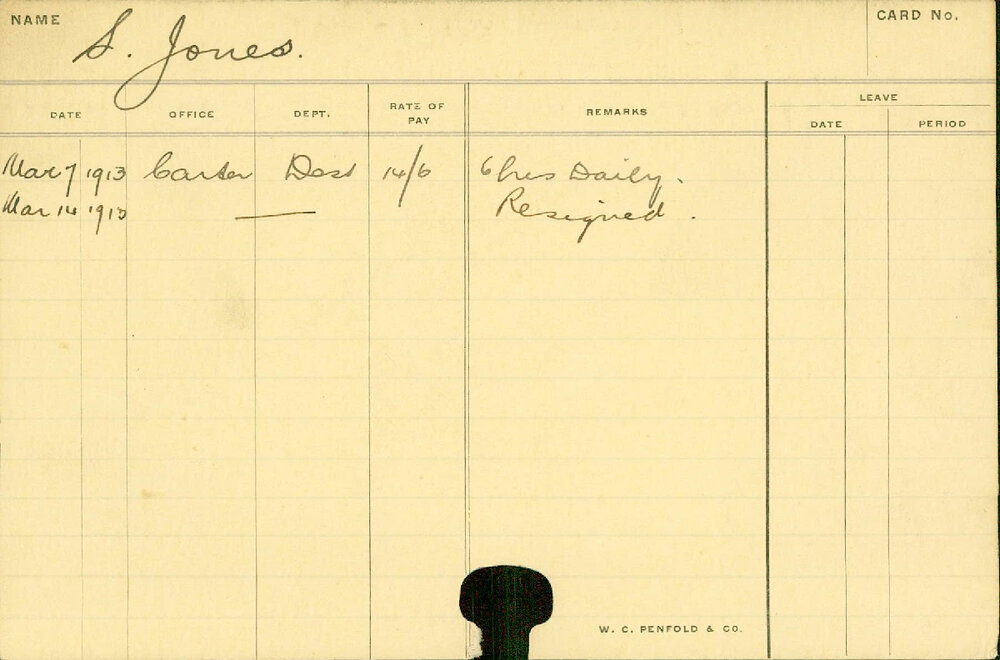 NAME S. Jones. CARD No.
DATE OFFICE DEPT. RATE OF PAY REMARKS LEAVE
DATE PERIOD
Mar 7 1913 Carter Dest 14/6 6 hrs Daily.
Mar 14 1913 — Resigned.
W. C. PENFOLD & CO.